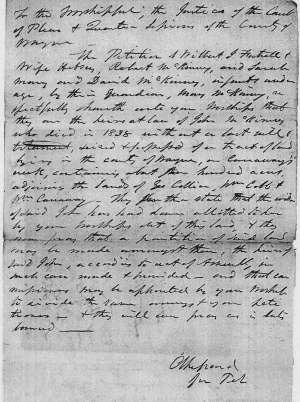 To the Worshipful, the Justices of the Court
of Pleas & Quarter Sessions of the County of
Wayne
The Petition of Wilbert J. &
Wife Robert McKinney, and Sarah
Mary and David McKinney, infants under
age, by their Guardian, Mary McKinney, re-
spectfully sheweth unto your Worships that
they are the heirs at law of John McKinney
who died in 1838 without a last will &
testament, seized & possessed of a tract of land
lying in the county of Wayne, on
creek, containing about three hundred acres,
adjoining the lands of Geo Collier, Wm Cobb &
Wm They further state that the widow
of said John has had dower allotted to her
by your Worships out of this land, & they
now pray that a partition of said land
may be made amongst them the heirs of
said John, according to act of Assembly in
such case made & provided - and that com-
missioners may be appointed by your Worships
to divide the same amongst your peti-
tioners - & they will ever pray as in duty
bound
for Pet